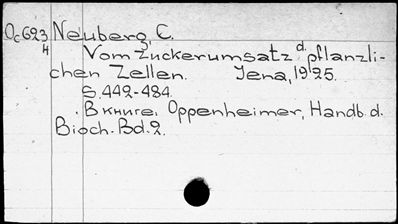 Oc623 Neuberg, C.
4 Vom Zuckerumsatz d. pflanzli-
chen Zellen. Jena, 1925.
S. 442-484.
. В книге: Oppenheimer, Handb. d.
Bioch. Bd. 2.